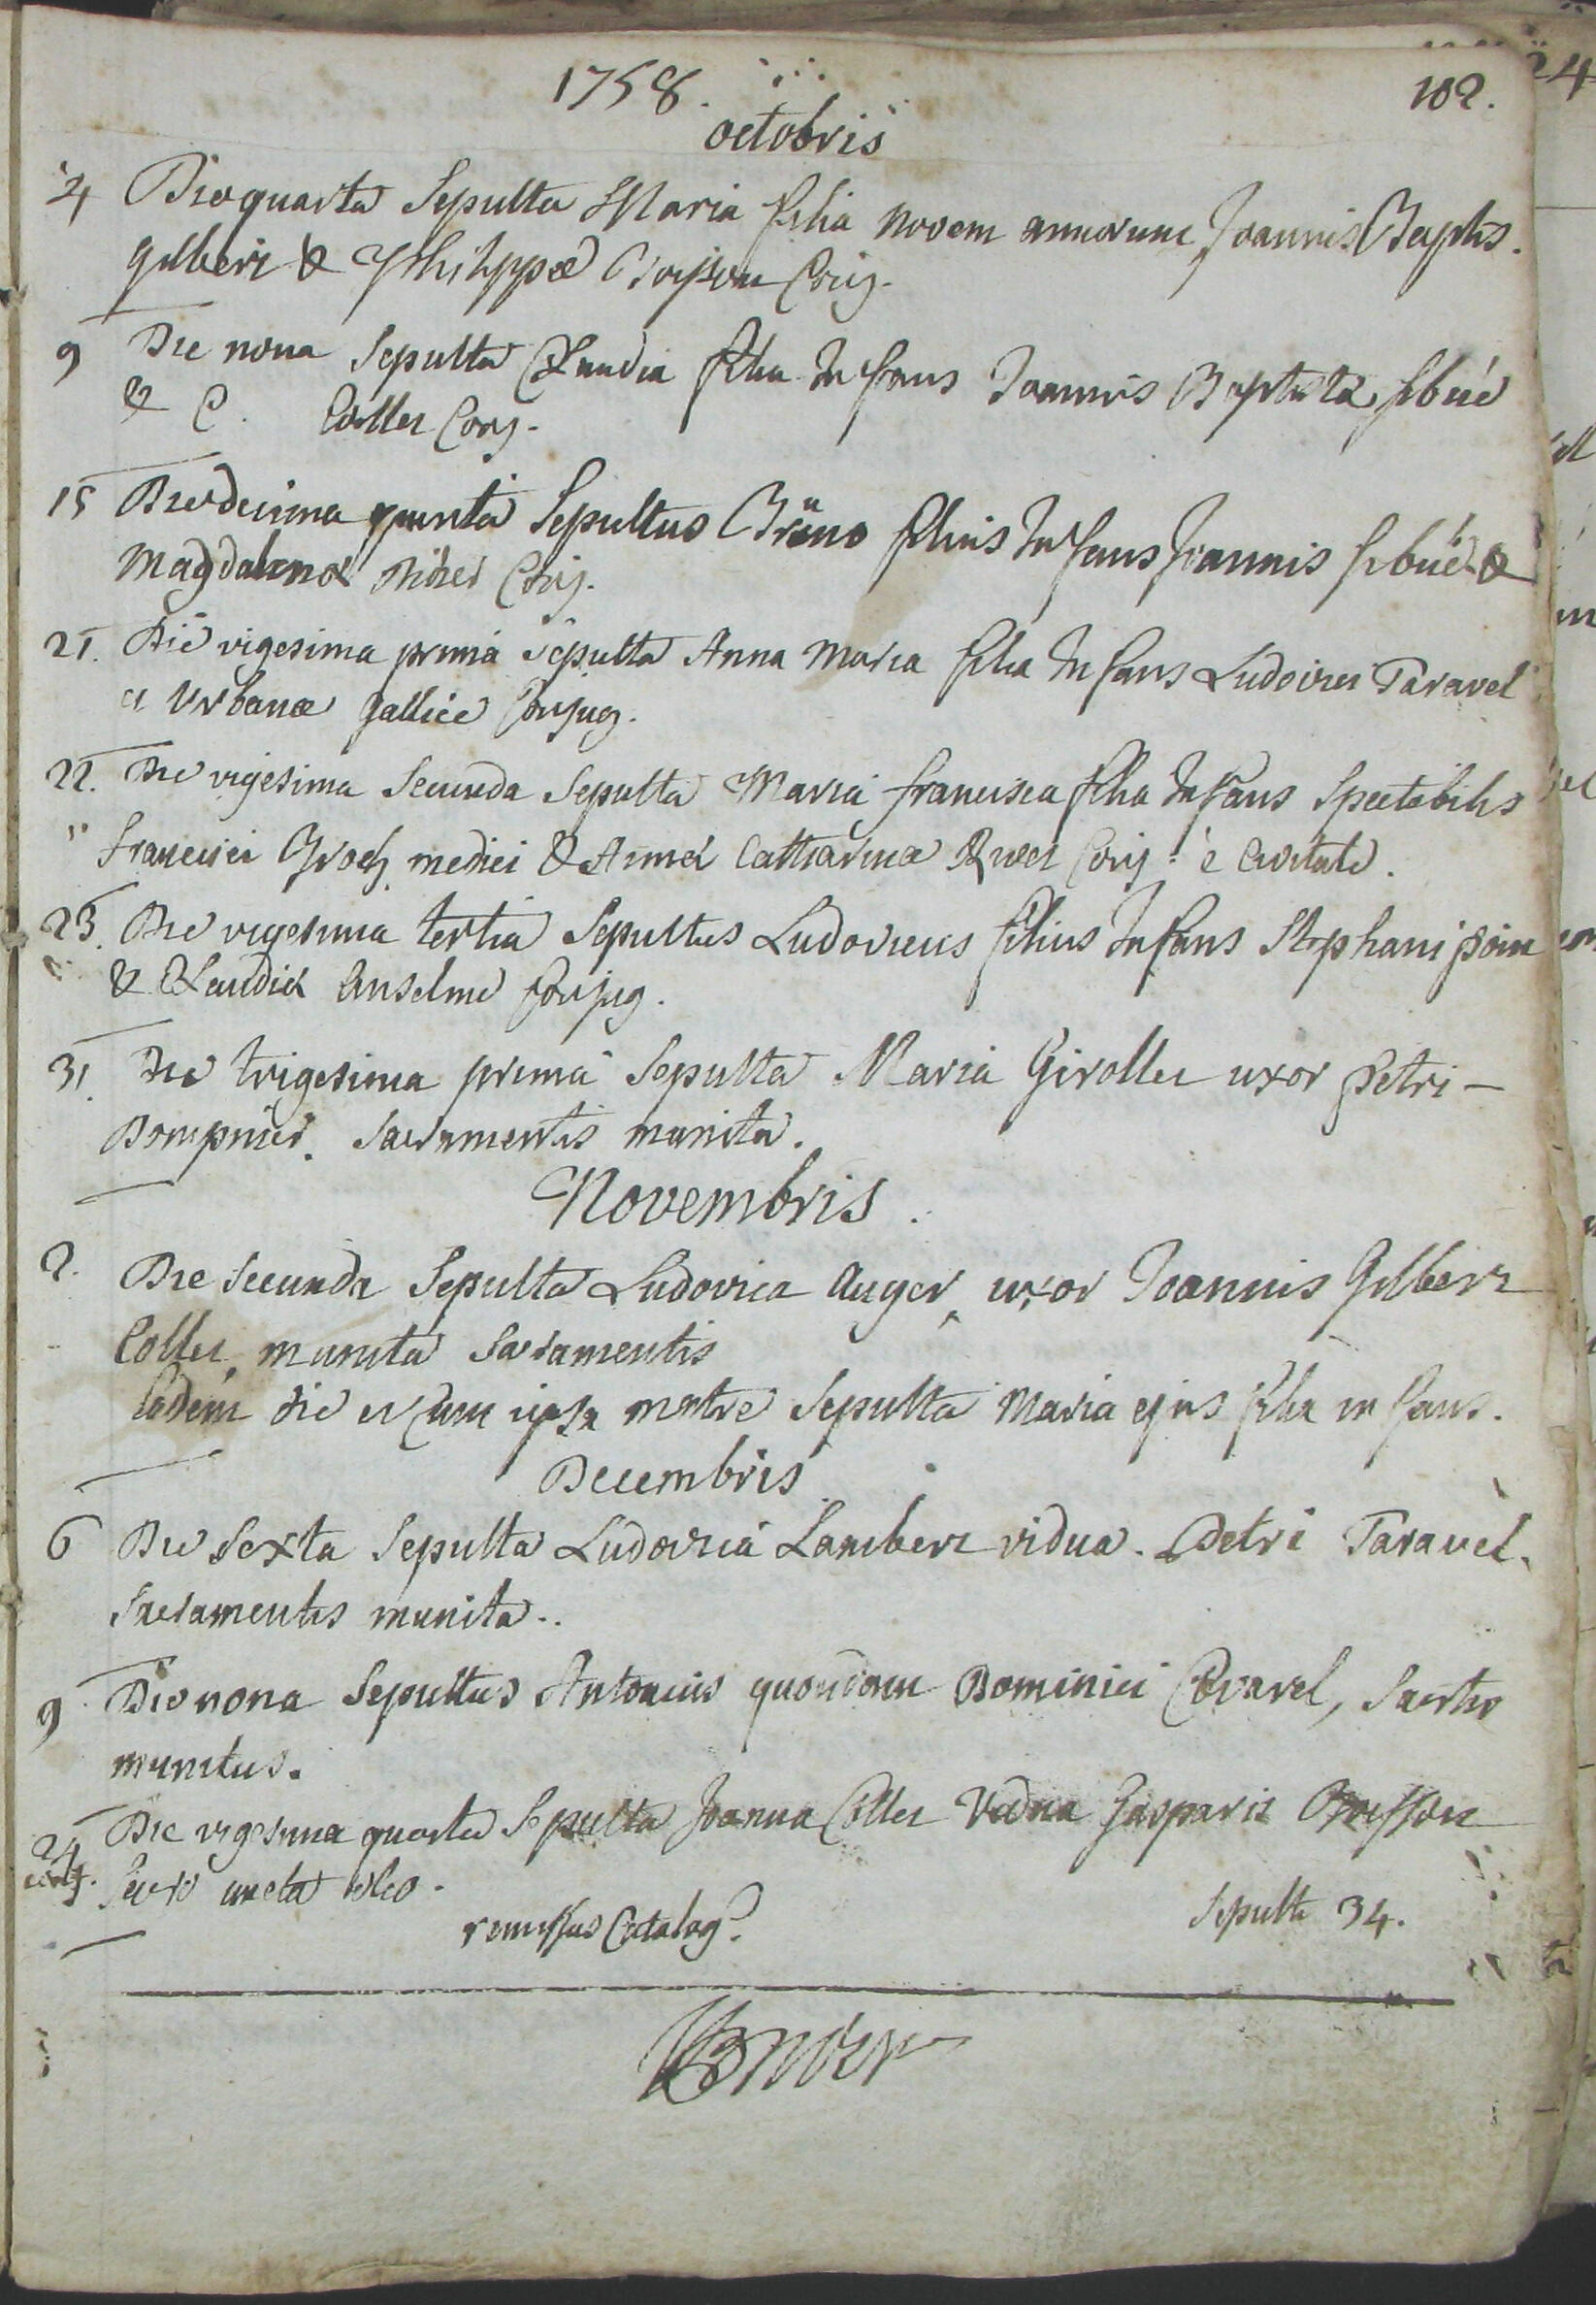 1758. 102.
octobris
4 Die quarta Sepulta Maria filia novem annorum Joannis Baptis.
gilbert & Philippæ Boisson Conj.
9 Die nona Sepulta Claudia filia Infans Joannis Baptista
& C. Collet Conj.
15 Die decima quinta Sepultus Brüno filius Infans Joannis &
Magdalenæ Conj.
21. Die vigesima prima Sepulta Anna Maria filia Infans Ludovici Taravel
et Urbanæ gallice Conjug.
22. Die vigesima Secunda Sepulta Maria francisca filia Infans Spectabilis
Francisci medici & Annæ Catharinæ Conj. è Civitate.
23. Die vigesima tertia Sepultus Ludovicus filius Infans Stephani
& Claudiæ Anselme Conjug.
31. Die trigesima prima Sepulta Maria Girollet uxor Petri –
Dompnier. Sacramentis munita.
Novembris.
2. Die Secunda Sepulta Ludovica Auger, uxor Joannis Gilbert
Collet, munita Sacramentis
Eadem die et cum ipsa matre Sepulta Maria ejus filia infans.
Decembris
6 Die Sexta Sepulta Ludovica Lambert vidua Petri Taravel.
Sacramentis munita..
9 Die nona Sepultus Antonius quondam Dominici Covarel, Sacrtis
munitus.
24 Die vigesima quarta Sepulta Joanna Collet Vidua Gasparis Boisson
Sacro uncta oleo.
remissus Catalog. Sepulti 34.